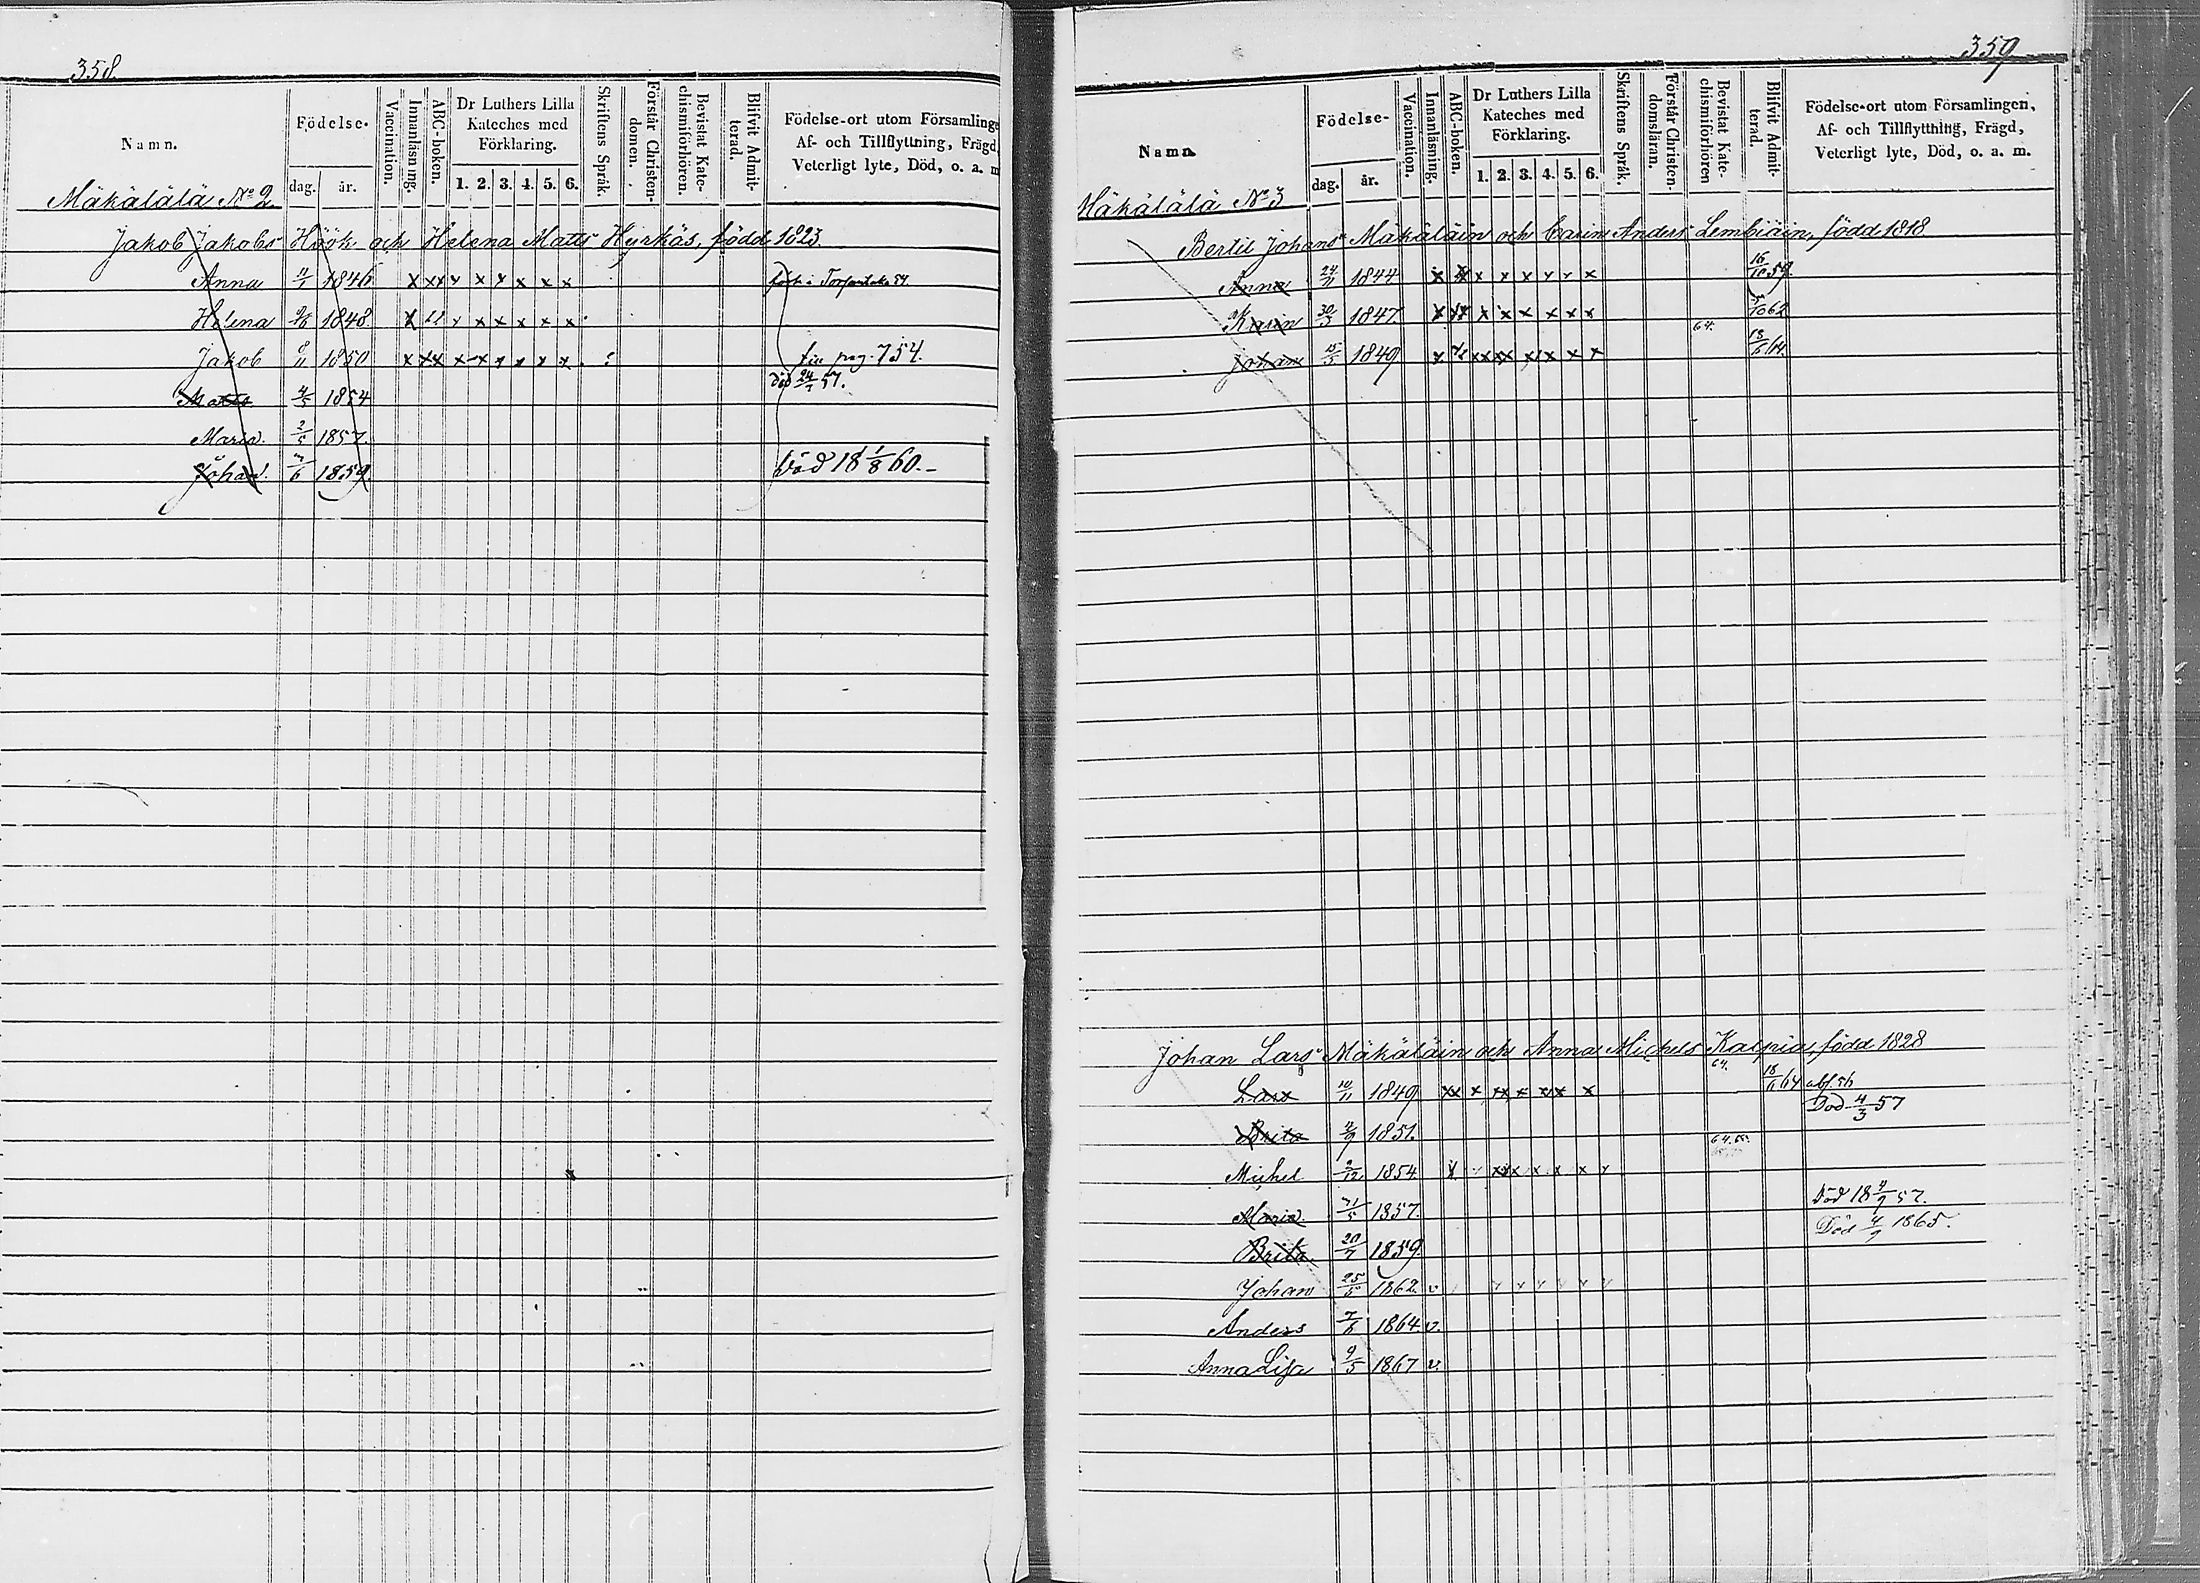 358.
Namn.
Födelse-
dag. år.
Vaccination.
Innanläsning.
ABC-boken.
Dr Luthers Lilla
Kateches med
Förklaring.
1. 2. 3. 4. 5. 6.
Skriftens Språk.
Förstår Christen-
domen.
Bevistat Kate-
chismiförhören.
Blifvit Admit-
terad.
Födelse-ort utom Församlinge
Af- och Tillflyttning, Frägd,
Veterligt lyte, Död, o. a. m
Mäkälälä No 2.
Jakob Jakobs Höök och Helena Matts Hyrkäs, född 1823.
Anna 4/1 1846 x xx x x x x x x
Helena 1848 x x x x x x
Jakob 8/11 1850 x xx x x x x x x fin pag. 754.
död 24/7 57.
Matts 4/5 1854
Maria. 2/5 1857.
Johan. 7/6 1859. Död 18 1/8 60.-
359
Namn.
Födelse-
dag. år.
Vaccination.
Innanläsning.
ABC-boken.
Dr Luthers Lilla
Kateches med
Förklaring.
1. 2. 3. 4. 5. 6.
Skriftens Språk.
Förstår Christen-
domsläran.
Bevistat Kate-
chismiförhören
Blifvit Admit-
terad.
Födelse-ort utom Församlingen,
Af- och Tillflyttning, Frägd,
Veterligt lyte, Död, o. a. m.
Mäkälälä No 3
Bertil Johans Mäkäläin och Carin Anders Lembiäin, född 1818
Anna 24/11 1844 x x x x x x x x 16/10 59.
Karin 30/3 1847 x xx x x x x x x 5/10 62
Johan 15/5 1849 x xx xx x x x x 64. 18/6 64.
Johan Lars Mäkäläin och Anna Michels Karpia, född 1828
Lars 10/11 1849 xx x xx x xx x 64. 18/6 64
Död 4/3 57
Brita 2/9 1851.
Michel 2/12 1854. x xxx x x x x 64.
Maria 21/5 1857. Död 18 4/9 57.
Brita 20/7 1859. Död 4/9 1865.
Johan 25/5 1862. v
Anders 7/6 1864. v.
Anna Lisa 9/5 1867 v.